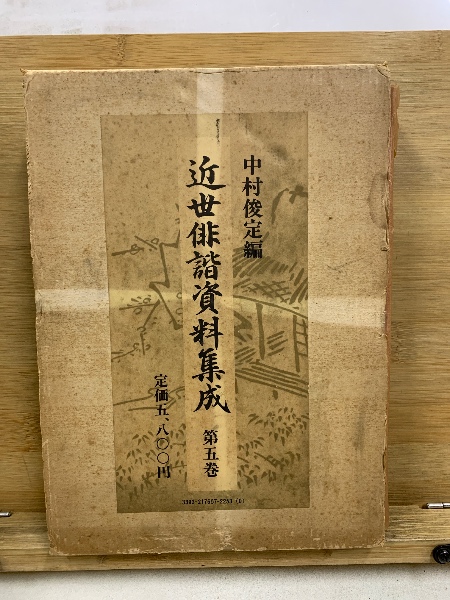 中村俊定編
近世俳諧資料集成
第五巻
定価五、八〇〇円
3393-217657-2253 (0)